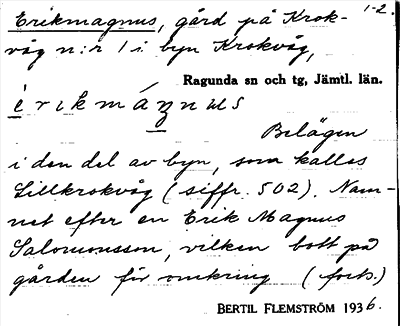 Erikmagnus, gård på Krok- 1-2.
våg n:r 1 i byn Krokvåg,
Ragunda sn och tg, Jämtl. län.
èrikmágnus
Belägen
i den del av byn, som kallas
Lillkrokvåg (siffr. 502). Nam-
net efter en Erik Magnus
Salomonsson, vilken bott på
gården för omkring (forts.)
BERTIL FLEMSTRÖM 1936.